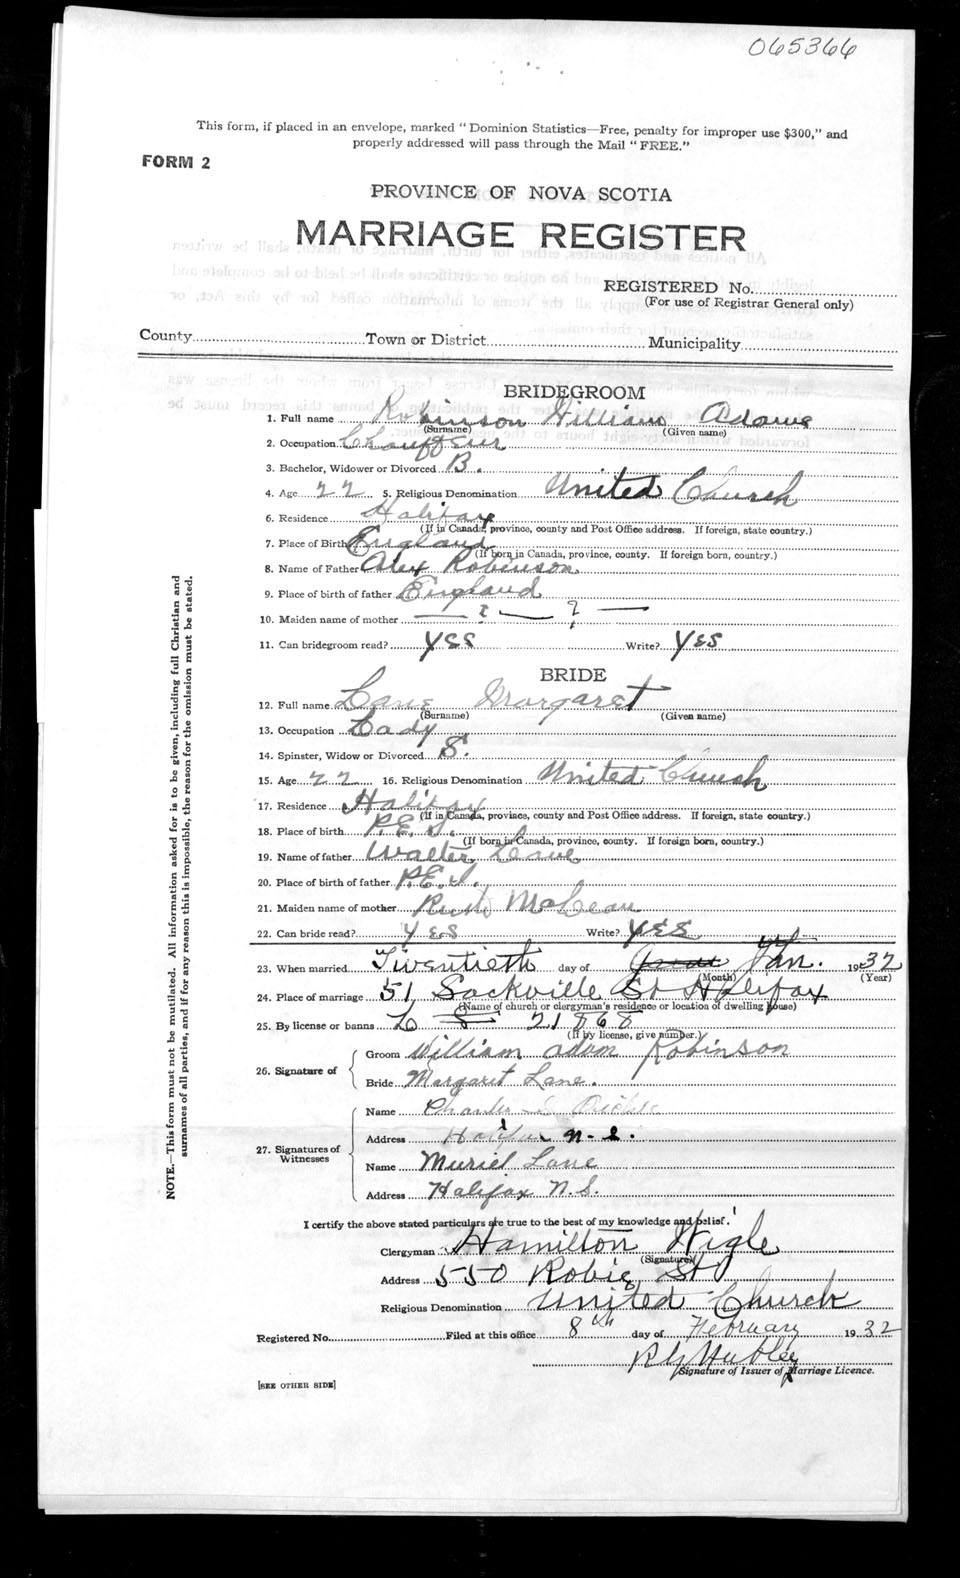 065366
This form, if placed in an envelope, marked "Dominion Statistics—Free, penalty for improper use $300," and
properly addressed will pass through the Mail "FREE."
FORM 2
PROVINCE OF NOVA SCOTIA
MARRIAGE REGISTER
REGISTERED No.
(For use of Registrar General only)
County Town or District Municipality
BRIDEGROOM
1. Full name Robinson William Adams
(Surname) (Given name)
2. Occupation Chauffeur
3. Bachelor, Widower or Divorced B.
4. Age 22 5. Religious Denomination United Church
6. Residence Halifax
(If in Canada, province, county and Post Office address. If foreign, state country.)
7. Place of Birth England
(If born in Canada, province, county. If foreign born, country.)
8. Name of Father Alex Robinson
9. Place of birth of father England
10. Maiden name of mother — ? — ? —
11. Can bridegroom read? YES Write? YES
BRIDE
12. Full name Lane Margaret
(Surname) (Given name)
13. Occupation Lady
14. Spinster, Widow or Divorced S.
15. Age 22 16. Religious Denomination United Church
17. Residence Halifax
(If in Canada, province, county and Post Office address. If foreign, state country.)
18. Place of birth P.E.I.
(If born in Canada, province, county. If foreign born, country.)
19. Name of father Walter Lane
20. Place of birth of father P.E.I.
21. Maiden name of mother McLean
22. Can bride read? YES Write? YES
23. When married Twentieth day of Jan. 1932
(Month) (Year)
24. Place of marriage 51, Sackville St Halifax
(Name of church or clergyman's residence or location of dwelling house)
25. By license or banns L 21868
(If by license, give number.)
26. Signature of
Groom William Adam Robinson
Bride Margaret Lane.
27. Signatures of Witnesses
Name Charles
Address Halifax N.S.
Name Muriel Lane
Address Halifax N.S.
I certify the above stated particulars are true to the best of my knowledge and belief.
Clergyman Hamilton Wigle
(Signature)
Address 550 Robie St
Religious Denomination United Church
Registered No. Filed at this office 8th day of February 1932
Hubley
Signature of Issuer of Marriage Licence.
[SEE OTHER SIDE]
NOTE.—This form must not be mutilated. All information asked for is to be given, including full Christian and
surnames of all parties, and if for any reason this is impossible, the reason for the omission must be stated.